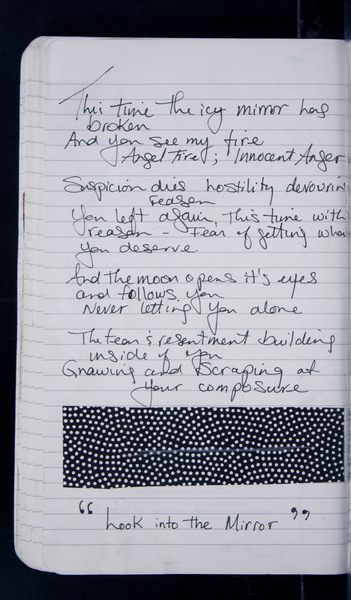 This time the icy mirror has
broken
And you see my fire
Angel Fire; Innocent Anger
Suspicion dies hostility devourin
reason
You left again, This time with
reason - Fear of getting wha
you deserve
And the moon opens it's eyes
and follows you
Never letting you alone
The fear & resentment building
inside of you
Gnawing and scraping at
your composure
" Look into the Mirror "